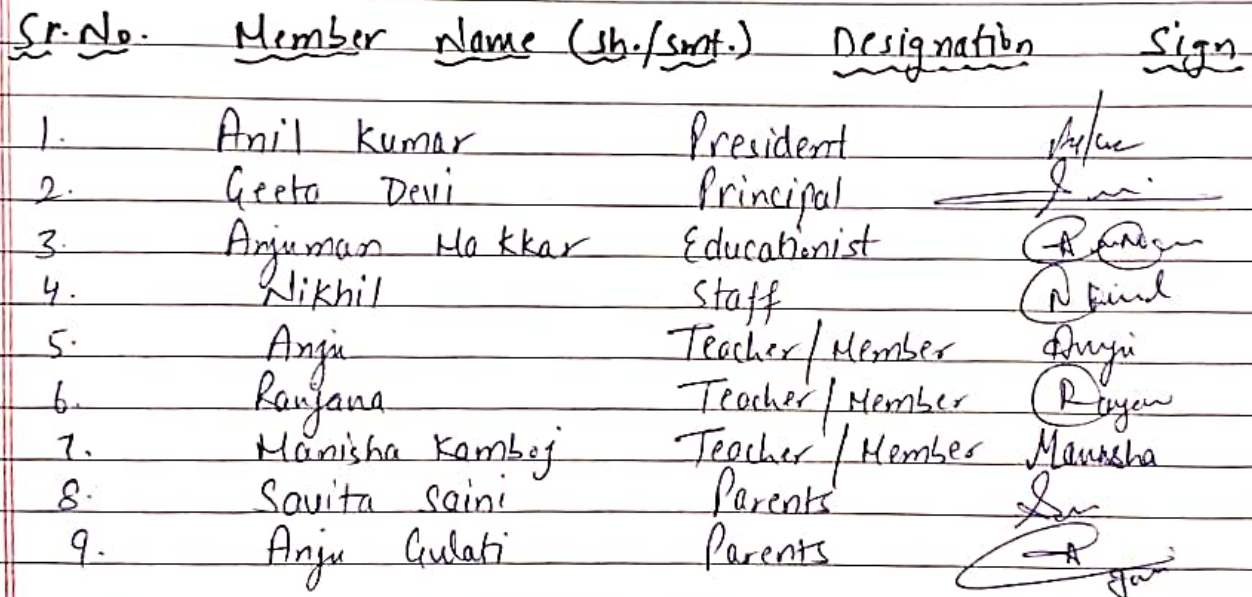 Sr. No. Member Name (Sh./Smt.) Designation Sign
1. Anil Kumar President
2. Geeta Devi Principal
3. Anjuman Makkar Educationist
4. Nikhil Staff
5. Anju Teacher/Member Anju
6. Ranjana Teacher/Member
7. Manisha Kamboj Teacher/Member Manisha
8. Savita Saini Parents
9. Anju Gulati Parents